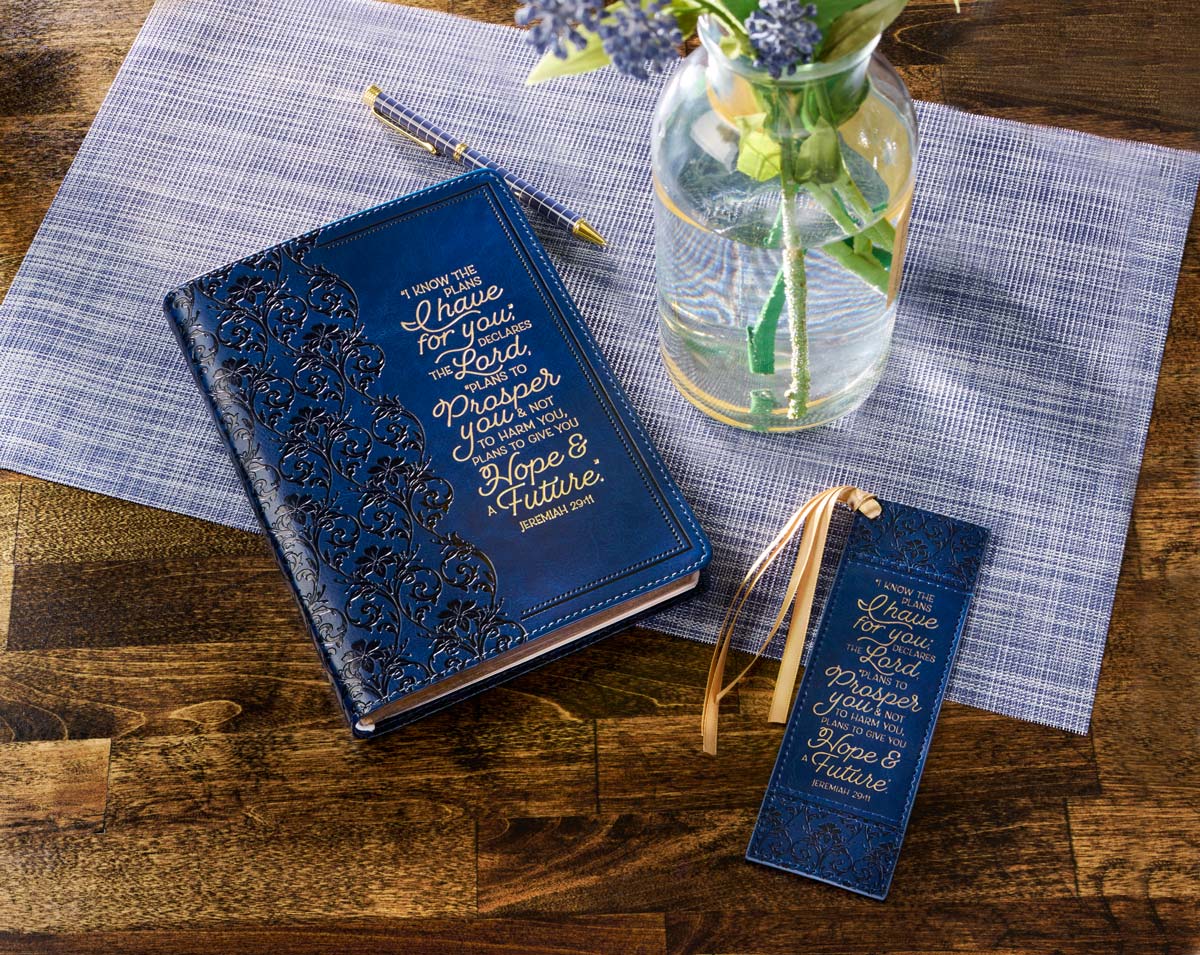 "I KNOW THE
PLANS
I have
for you,"
DECLARES
THE Lord,
"PLANS TO
Prosper
you & NOT
TO HARM YOU,
PLANS TO GIVE YOU
Hope &
A Future."
JEREMIAH 29:11
"I KNOW THE
PLANS
I have
for you,"
DECLARES
THE Lord,
"PLANS TO
Prosper
you & NOT
TO HARM YOU,
PLANS TO GIVE YOU
Hope &
A Future."
JEREMIAH 29:11